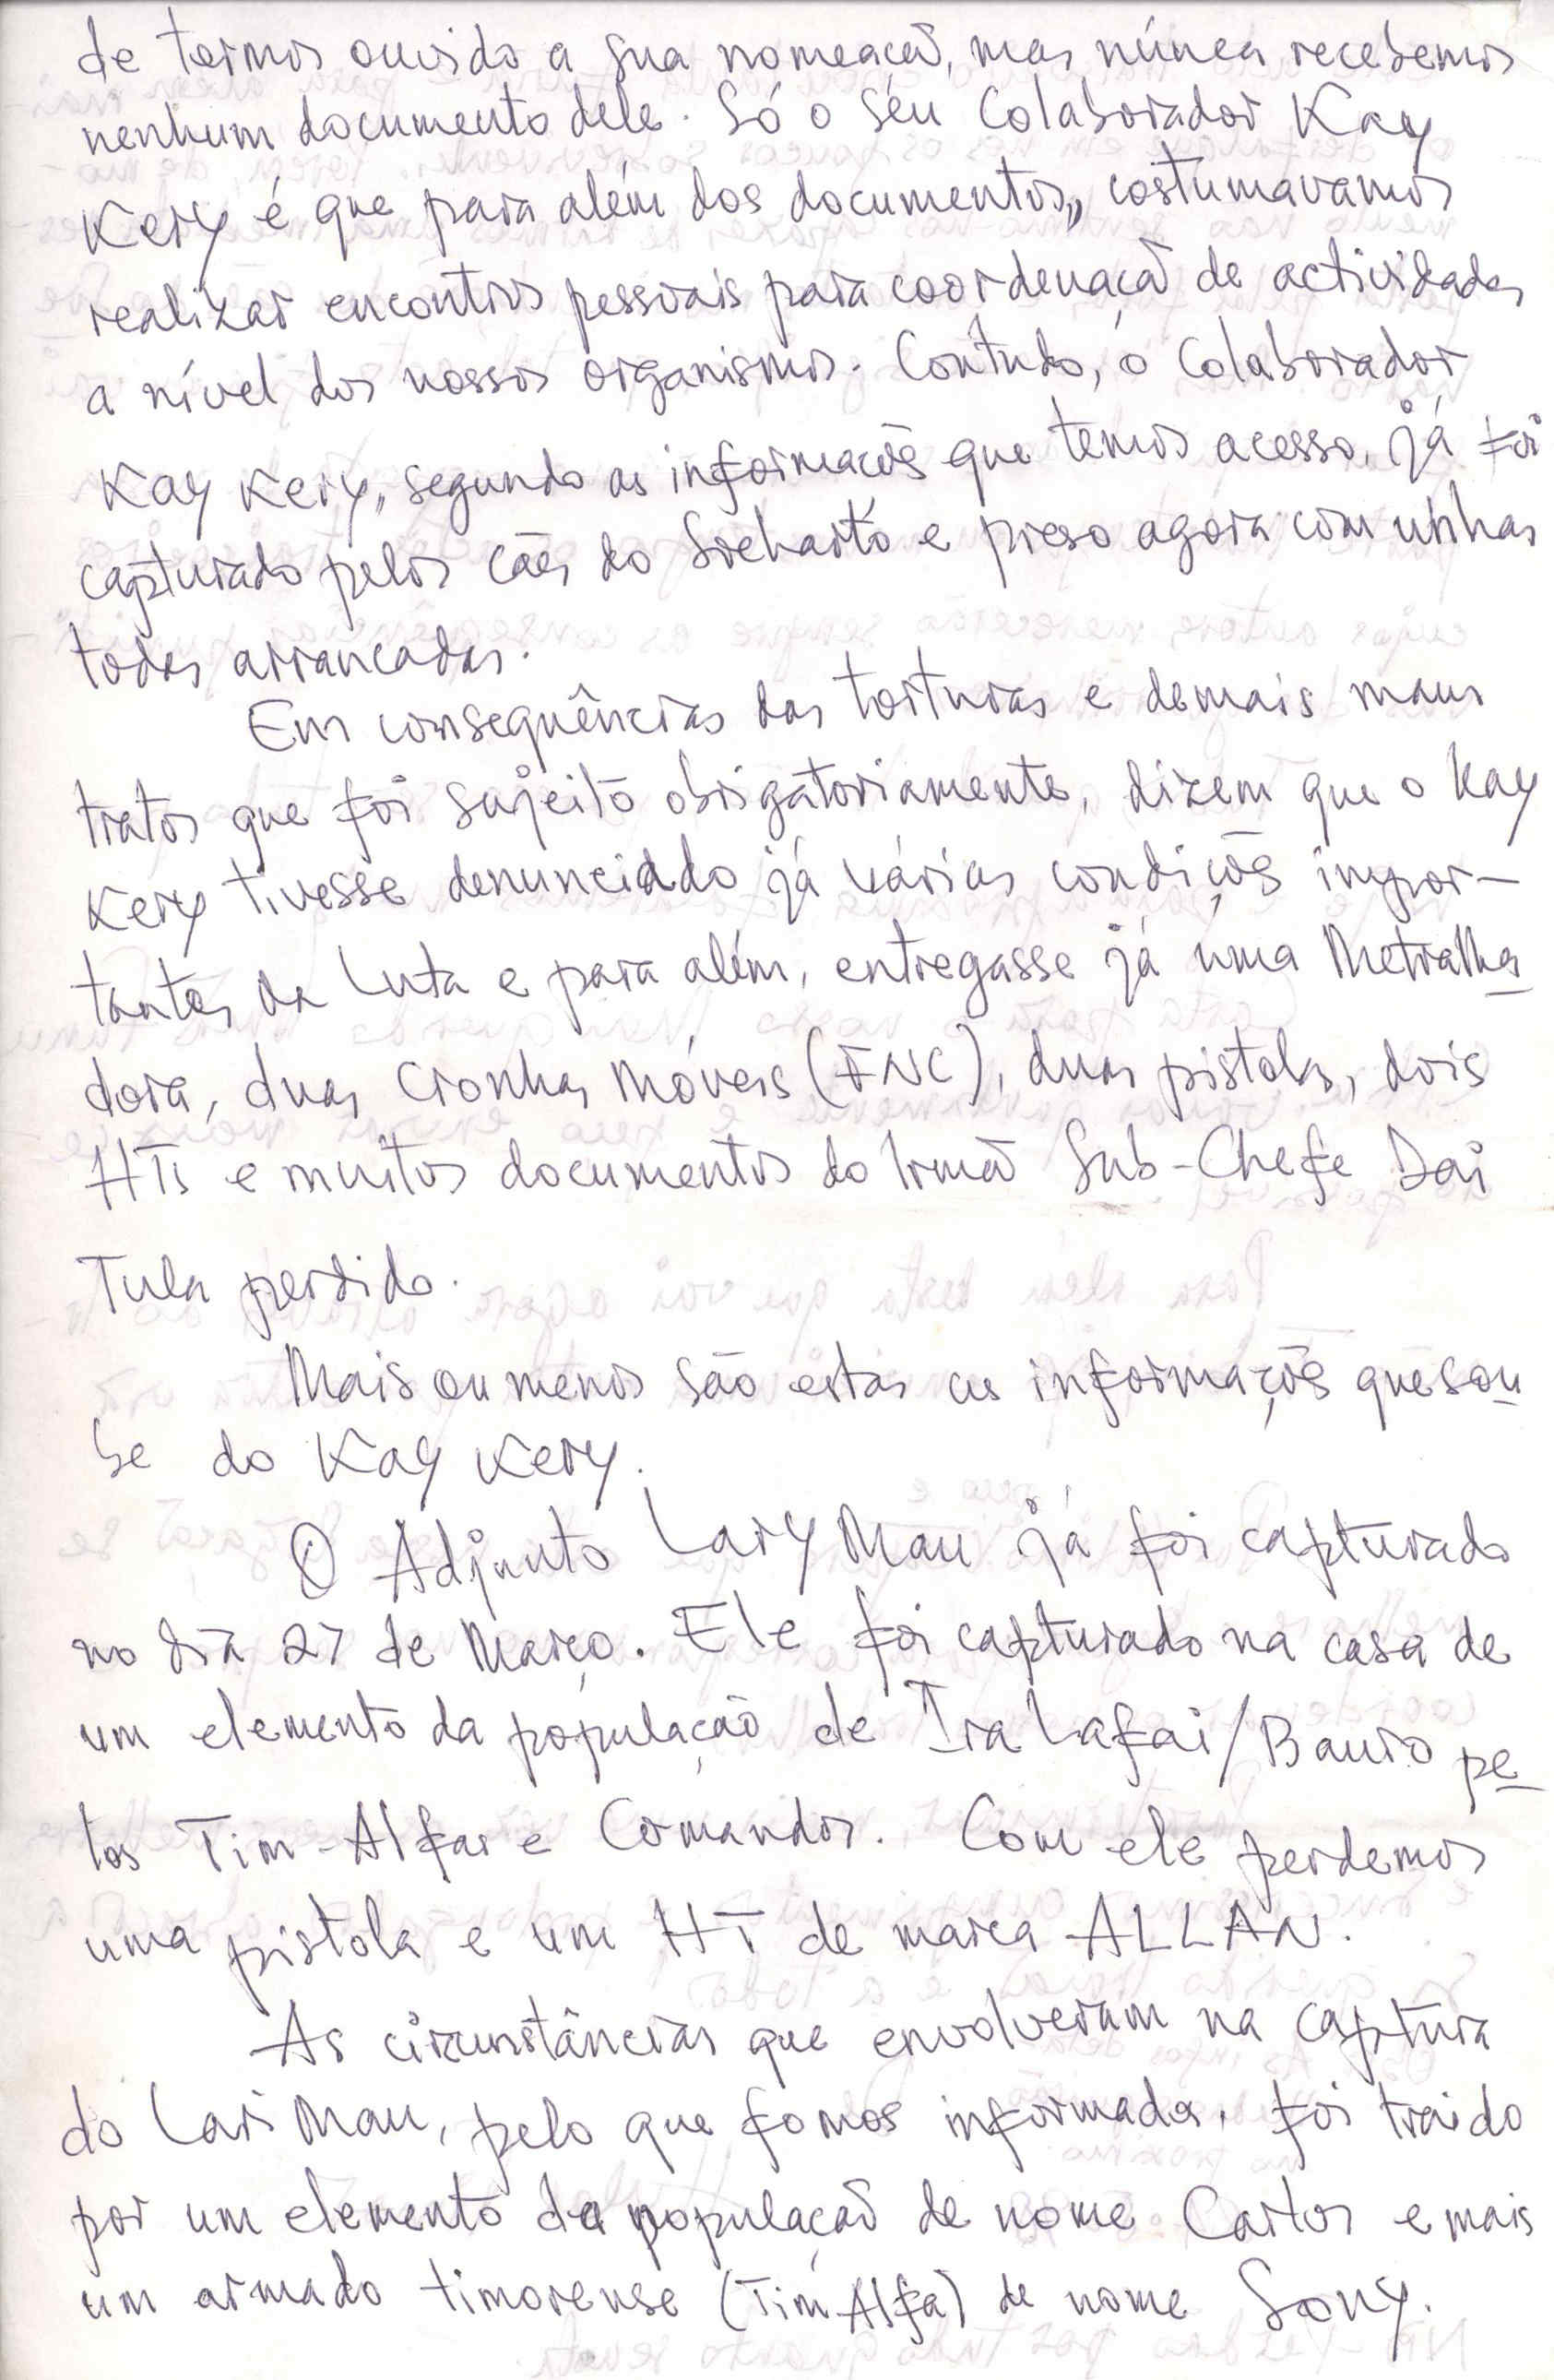 de termos ouvido a sua nomeação, mas núnca recebemos
nenhum documento dele. Só o séu Colaborador Kay
Kery é que para além dos documentos,, costumavamos
realizar encontros pessoais para coordenação de actividades
a nível dos nossos organismos. Contudo, o Colaborador
Kay Kery, segundo as informações que temos acesso, já foi
capturado pelos cães do Soeharto e preso agora com unhas
todas arrancadas.
Em consequências das torturas e demais maus
tratos que foi sujeito obrigatoriamente, dizem que o Kay
Kery tivesse denunciado já várias condições impor-
tantes da Luta e para além, entregasse já uma Metralha
dora, duas Cronhas Móveis (FNC), duas pistolas, dois
HTs e muitos documentos do Irmão Sub-Chefe Dai
Tula perdido.
Mais ou menos são estas as informações que sou
be do Kay Kery.
O Adjunto Lary Mau já foi capturado
no dia 27 de Março. Ele foi capturado na casa de
um elemento da população de Ira Lafai/Bauro pe
los Tim-Alfas e Comandos. Com ele perdemos
uma pistola e um HT de marca ALLAN.
As circunstâncias que envolveram na captura
do Lari Mau, pelo que fomos informados, foi traido
por um elemento da população de nome Carlos e mais
um armado timorense (Tim Alfa) de nome Sony.